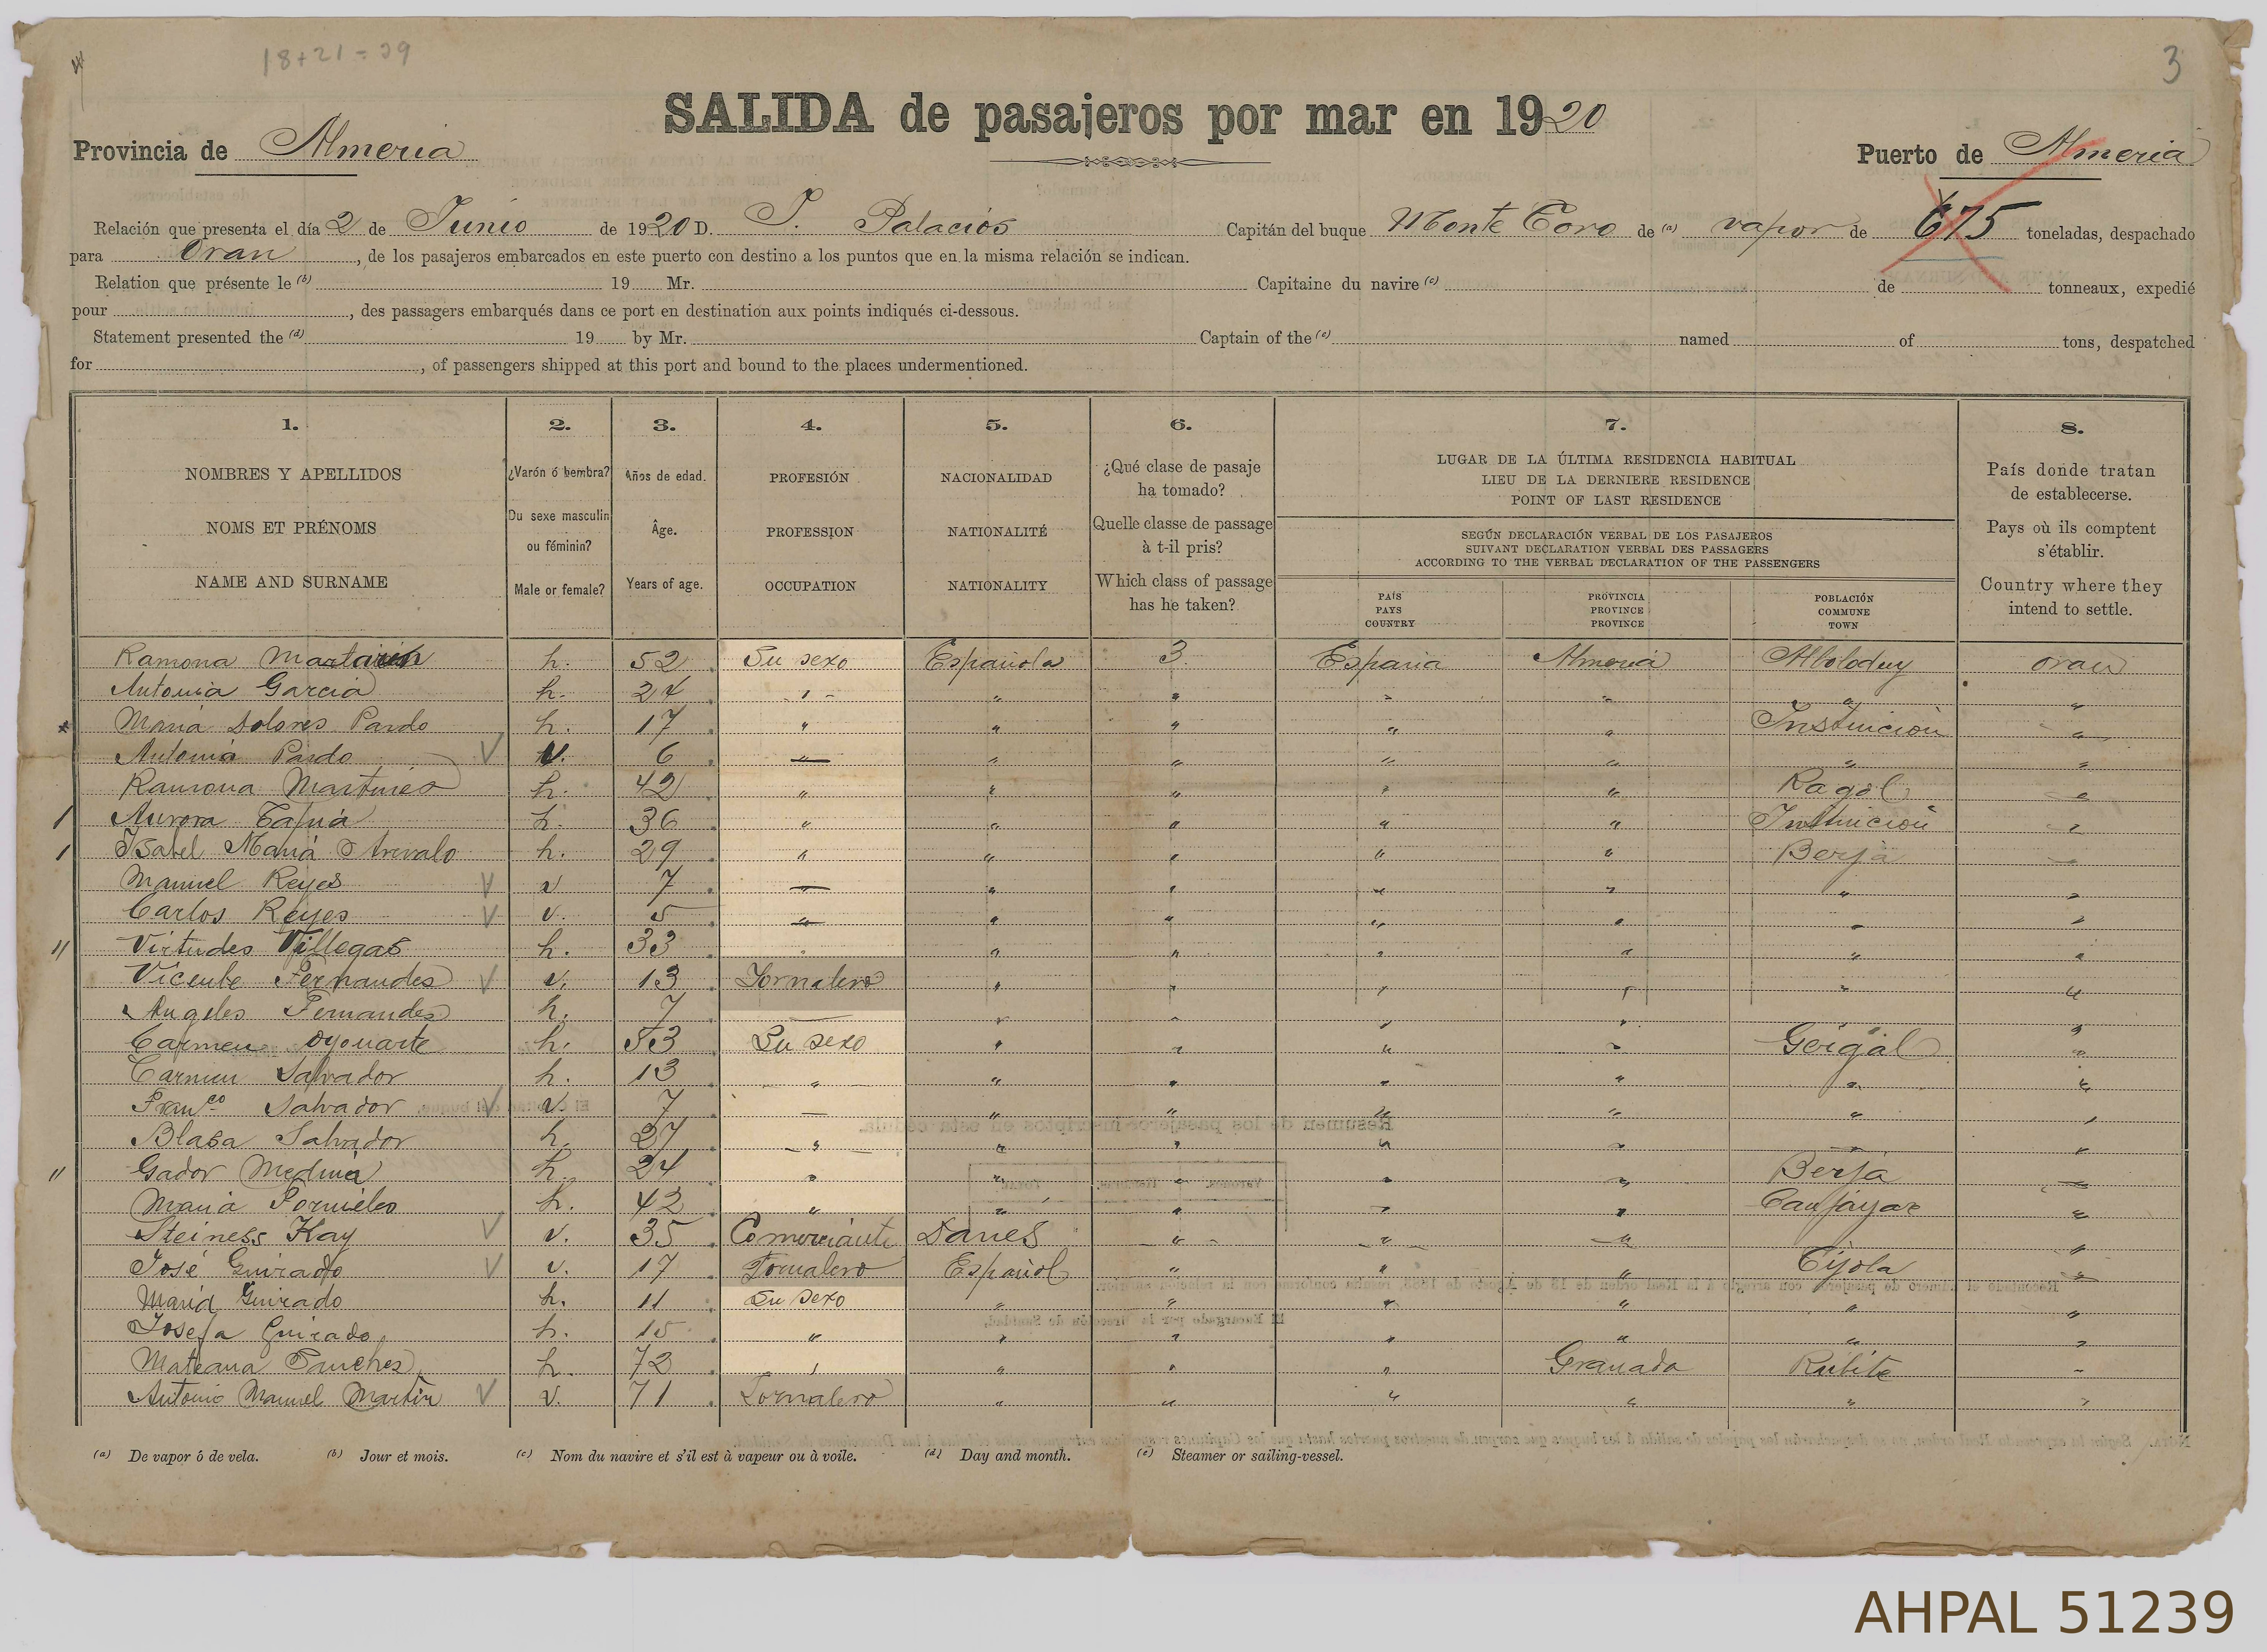 18+21=39
3
SALIDA de pasajeros por mar en 1920
Provincia de Almeria
Puerto de Almeria
Relación que presenta el día 2 de Junio de 1920 D. J. Palacios Capitán del buque Monte Toro de (a) vapor de 675 toneladas, despachado
para Oran, de los pasajeros embarcados en este puerto con destino a los puntos que en la misma relación se indican.
Relation que présente le (b) 19 Mr. Capitaine du navire (c) de tonneaux, expedié
pour , des passagers embarqués dans ce port en destination aux points indiqués ci-dessous.
Statement presented the (d) 19 by Mr. Captain of the (e) named of tons, despatched
for , of passengers shipped at this port and bound to the places undermentioned.
1. 2. 3. 4. 5. 6. 7. 8.
NOMBRES Y APELLIDOS
NOMS ET PRÉNOMS
NAME AND SURNAME
¿Varón ó hembra?
Du sexe masculin
ou féminin?
Male or female?
Años de edad.
Âge.
Years of age.
PROFESIÓN
PROFESSION
OCCUPATION
NACIONALIDAD
NATIONALITÉ
NATIONALITY
¿Qué clase de pasaje
ha tomado?
Quelle classe de passage
à t-il pris?
Which class of passage
has he taken?
LUGAR DE LA ÚLTIMA RESIDENCIA HABITUAL
LIEU DE LA DERNIERE RESIDENCE
POINT OF LAST RESIDENCE
SEGÚN DECLARACIÓN VERBAL DE LOS PASAJEROS
SUIVANT DECLARATION VERBAL DES PASSAGERS
ACCORDING TO THE VERBAL DECLARATION OF THE PASSENGERS
PAÍS
PAYS
COUNTRY
PROVINCIA
PROVINCE
PROVINCE
POBLACIÓN
COMMUNE
TOWN
País donde tratan
de establecerse.
Pays où ils comptent
s'établir.
Country where they
intend to settle.
Ramona h. 52 Su sexo Española 3 España Almeria Alboloduy oran
Antonia Garcia h. 24 " " " " " " "
Maria Dolores Pardo h. 17 " " " " " Instincion "
Antonia Pardo v. 6 " " " " " " "
Ramona Martines h. 42 " " " " " Ragol "
Aurora Tapia h. 36 " " " " " Instincion "
Isabel Maria Arevalo h. 29 " " " " " Berja "
Manuel Reyes v 7 — " " " " " "
Carlos Reyes v. 5 " " " " " " "
Virtudes Villegas h. 33 " " " " " " "
Vicente Fernandes v. 13 Jornalero " " " " " "
Angeles Fernandes h. 7 — " " " " "
Carmen Oyonarte h. 53 Su sexo " " " " Gergal "
Carmen Salvador h. 13 " " " " " " "
Franco Salvador v. 7 — " " " " " "
Blasa Salvador h. 27 " " " " " "
Gador Medina h. 24 " " " " " Berja "
Maria Pornieles h. 42 " " " " " Canjayar "
Steiness Kay v. 35 Comerciante Danes " " " "
José Guirado v. 17 Jornalero Español " " " Tijola "
Maria Guirado h. 11 Su sexo " " " " " "
Josefa Guirado h. 15 " " " " " " "
Mateana Sanches h. 72 " " " " Granada Rubite "
Antonio Manuel Martin v. 71 Jornalero " " " " " "
(a) De vapor ó de vela. (b) Jour et mois. (c) Nom du navire et s'il est à vapeur ou à voile. (d) Day and month. (e) Steamer or sailing-vessel.
AHPAL 51239